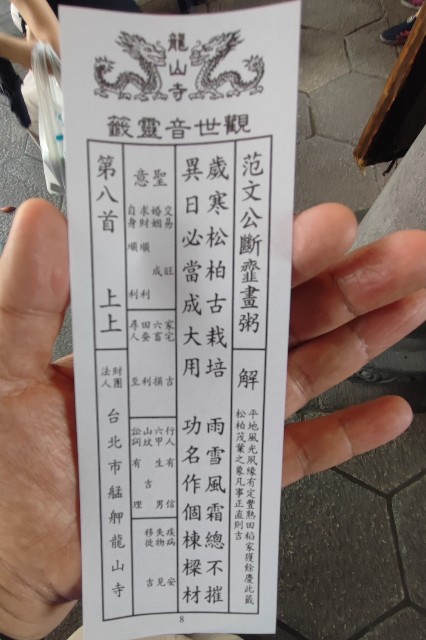 龍山寺
觀世音靈籤
范文公斷虀畫粥
解
平地風光風緣有定豐熟田稻家獲餘慶此籤
松柏茂葉之象凡事正直則吉
歲寒松柏古栽培 雨雪風霜總不摧
異日必當成大用 功名作個棟樑材
聖意
交易 旺
婚姻 成
求財 順利
自身 順利
家宅 吉
六畜 損
田蚕 利
尋人 至
行人 有信
六甲 生男
山坟 吉
訟詞 有理
疾病 安
失物 見
移徙 吉
第八首 上上
財團
法人
台北市艋舺龍山寺
8